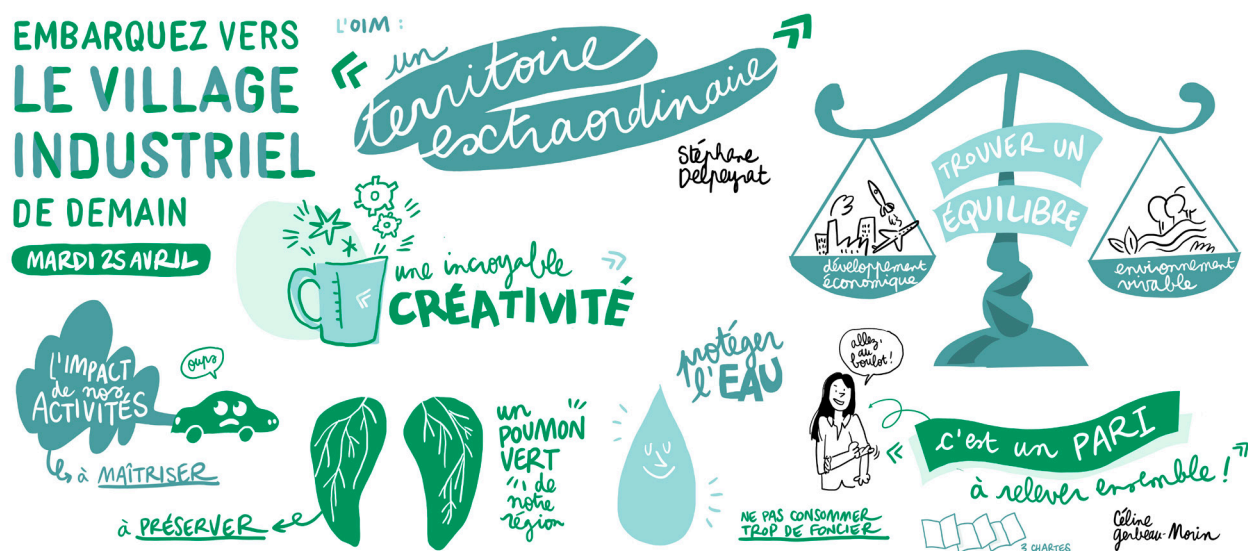 EMBARQUEZ VERS
LE VILLAGE
INDUSTRIEL
DE DEMAIN
MARDI 25 AVRIL
L'OIM :
« un
territoire
extraordinaire »
Stéphane
Delpeyrat
une incroyable
CRÉATIVITÉ
TROUVER UN
ÉQUILIBRE
développement
économique
environnement
vivable
L'IMPACT
de nos
ACTIVITÉS
oups
à MAÎTRISER
à PRÉSERVER
un
POUMON
VERT
de
notre
région
protéger
l'EAU
NE PAS CONSOMMER
TROP DE FONCIER
allez,
au
boulot !
« c'est un PARI
à relever ensemble ! »
3 CHARTES
Céline
Gerbeau-Morin